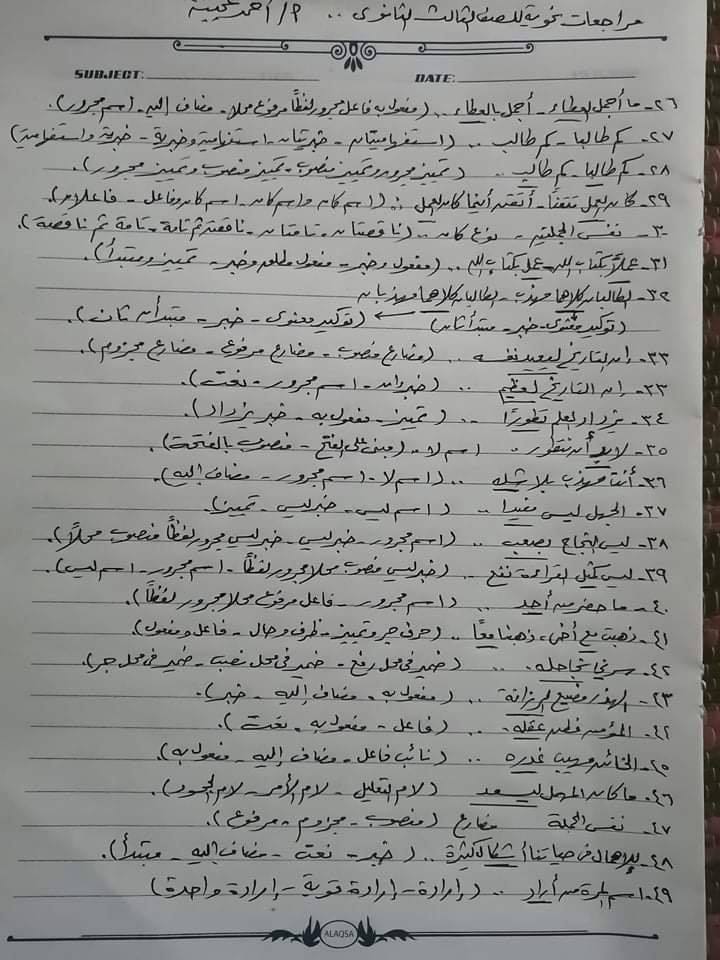 مراجعات نحوية للصف الثالث الثانوى .. أ/ أحمد عجيبة
SUBJECT: DATE:
٢٦- ما أجمل العطاء - أجمل بالعطاء .. (مفعول به فاعل مجرور لفظًا مرفوع محلا - مضاف إليه - اسم مجرور).
٢٧- كم طالبا - كم طالب .. (استفهاميتان - خبريتان - استفهامية وخبرية - خبرية واستفهامية)
٢٨- كم طالبا - كم طالب .. (تمييز مجرور وتمييز منصوب - تمييز منصوب وتمييز مجرور).
٢٩- كان العمل متقنًا - أتقنه أينما كان العمل .. (اسم كان واسم كان - اسم كان وفاعل - فاعلان).
٣٠- نفس الجملتين - نوع كان .. (ناقصتان - تامتان - ناقصة ثم تامة - تامة ثم ناقصة).
٣١- عملاً بكتاب الله - عمل بكتاب الله .. (مفعول وخبر - مفعول مطلق وخبر - تمييز ومبتدأ).
٣٢- الطالبان كلاهما مهذب - الطالبان كلاهما مهذبان
(توكيد معنوى - خبر - مبتدأ ثان) (توكيد معنوى - خبر - مبتدأ ثان).
٣٣- إن التاريخ ليعيد نفسه .. (مضارع منصوب - مضارع مرفوع - مضارع مجزوم).
٣٣- إن التاريخ لعظيم .. (خبر إن - اسم مجرور - نعت).
٣٤- يزداد العلم تطورًا .. (تمييز - مفعول به - خبر يزداد).
٣٥- لابد أن نتطور .. اسم لا - (مبنى على الفتح - منصوب بالفتحة).
٣٦- أنت مهذب بلا شك .. (اسم لا - اسم مجرور - مضاف إليه).
٣٧- الجهل ليس مفيدا .. (اسم ليس - خبر ليس - تمييز).
٣٨- ليس النجاح بصعب .. (اسم مجرور - خبر ليس - خبر ليس مجرور لفظًا منصوب محلاً).
٣٩- ليس كمثل القراءة نفع .. (خبر ليس منصوب محلا مجرور لفظًا - اسم مجرور - اسم ليس).
٤٠- ما حضر من أحد .. (اسم مجرور - فاعل مرفوع محلا مجرور لفظًا).
٤١- ذهبت مع أخى، ذهبنا معًا .. (حرف جر وتمييز - ظرف وحال - فاعل ومفعول).
٤٢- سرني نجاحك .. (ضمير في محل رفع - ضمير في محل نصب - ضمير في محل جر).
٢٣- الهذر مضيع الرزانة .. (مفعول به - مضاف إليه - خبر).
٤٢- المؤمن فطن عقله .. (فاعل - مفعول به - نعت).
٢٥- الخائن مهيب غدره .. (نائب فاعل - مضاف إليه - مفعول به).
٤٦- ما كان المهمل ليسعد (لام التعليل - لام الأمر - لام الجحود).
٤٧- نفس الجملة مضارع (منصوب - مجزوم - مرفوع).
٤٨- للإهمال في حياتنا أشكال كثيرة .. (خبر - نعت - مضاف إليه - مبتدأ).
٤٩- اسم المرة من أراد .. (إرادة - إرادة قوية - إرادة واحدة)
ALAQSA